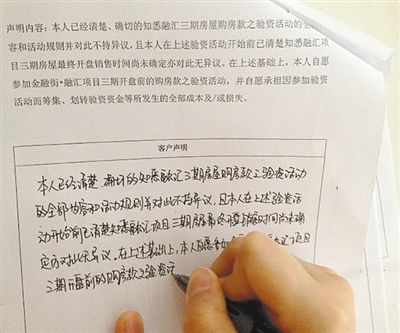 声明内容：本人已经清楚、确切的知悉融汇三期房屋购房款之验资活动的全
容和活动规则并对此不持异议，且本人在上述验资活动开始前已清楚知悉融汇项
目三期房屋最终开盘销售时间尚未确定亦对此无异议。在上述基础上，本人自愿
参加金融街·融汇项目三期开盘前的购房款之验资活动，并自愿承担因参加验资
活动而筹集、划转验资资金等所发生的全部成本及/或损失。
客户声明
本人已经清楚、确切的知悉融汇三期房屋购房款之验资活动
的全部内容和活动规则并对此不持异议，且本人在上述验资活
动开始前已清楚知悉融汇项目三期房屋最终开盘销售时间尚未确
定亦对此无异议。在上述基础上，本人自愿参加金 汇项目
三期开盘前的购房款之验资活